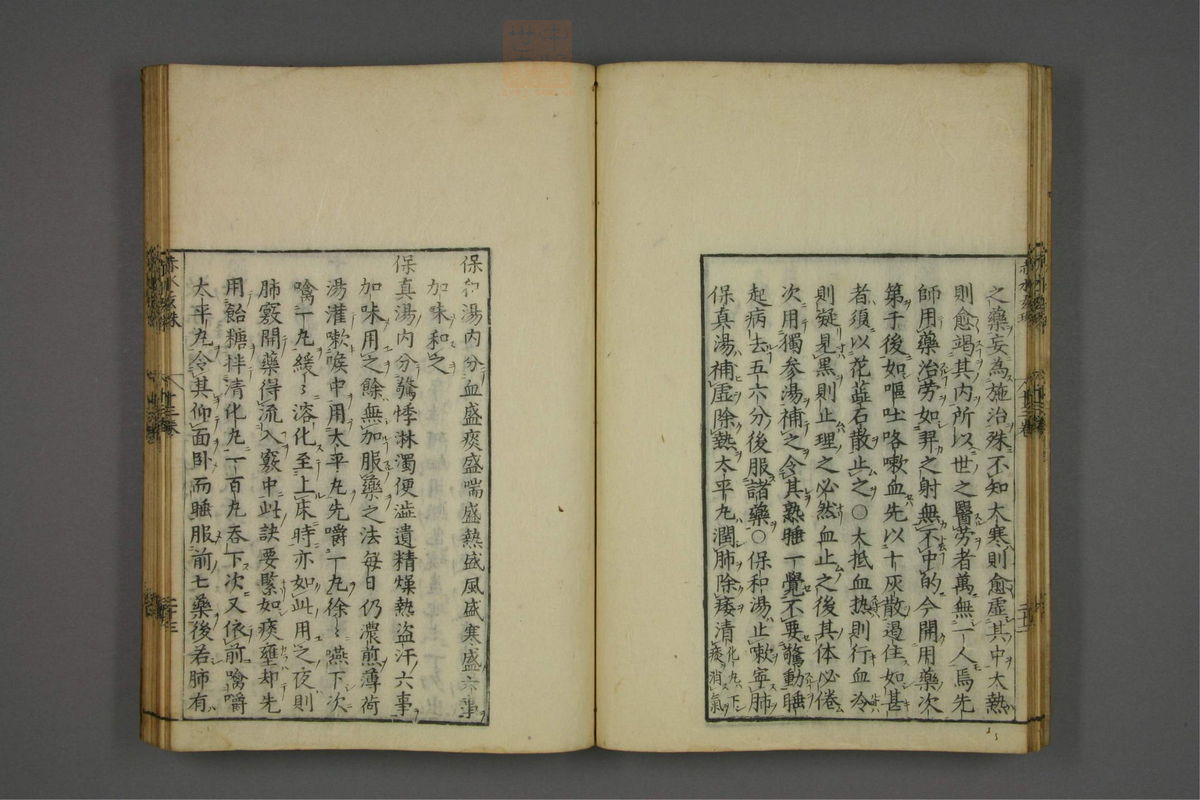 之藥妄為施治殊不知大寒則愈虛其中大熱
則愈竭其内所以世之醫劳者萬無一人焉先
師用藥治劳如羿之射無不中的今開用藥次
第于後如嘔吐咯嗽血先以十灰散遏住如甚
者須以花蕋石散止之○大抵血热則行血冷
則凝見黑則止理之必然血止之後其体必倦
次用獨参湯補之令其熟睡一覺不要驚動睡
起病去五六分後服諸藥○保和湯止嗽寧肺
保真湯補虛除熱太平丸潤肺除痿清化丸下痰消氣
保和湯内分血盛痰盛喘盛熱盛風盛寒盛六事
加味和之
保真湯内分驚悸淋濁便澁遺精燥熱盗汗六事
加味用之餘無加服藥之法每日仍濃煎薄荷
湯灌嗽喉中用太平丸先嚼一丸徐〻嚥下次
噙一丸緩〻溶化至上床時亦如此用之夜則
肺竅開藥得流入竅中此訣要緊如痰壅却先
用飴糖拌清化丸一百丸吞下次又依前噙嚼
太平丸令其仰面卧而睡服前七藥後若肺有
赤水玄珠
十三卷
二十三